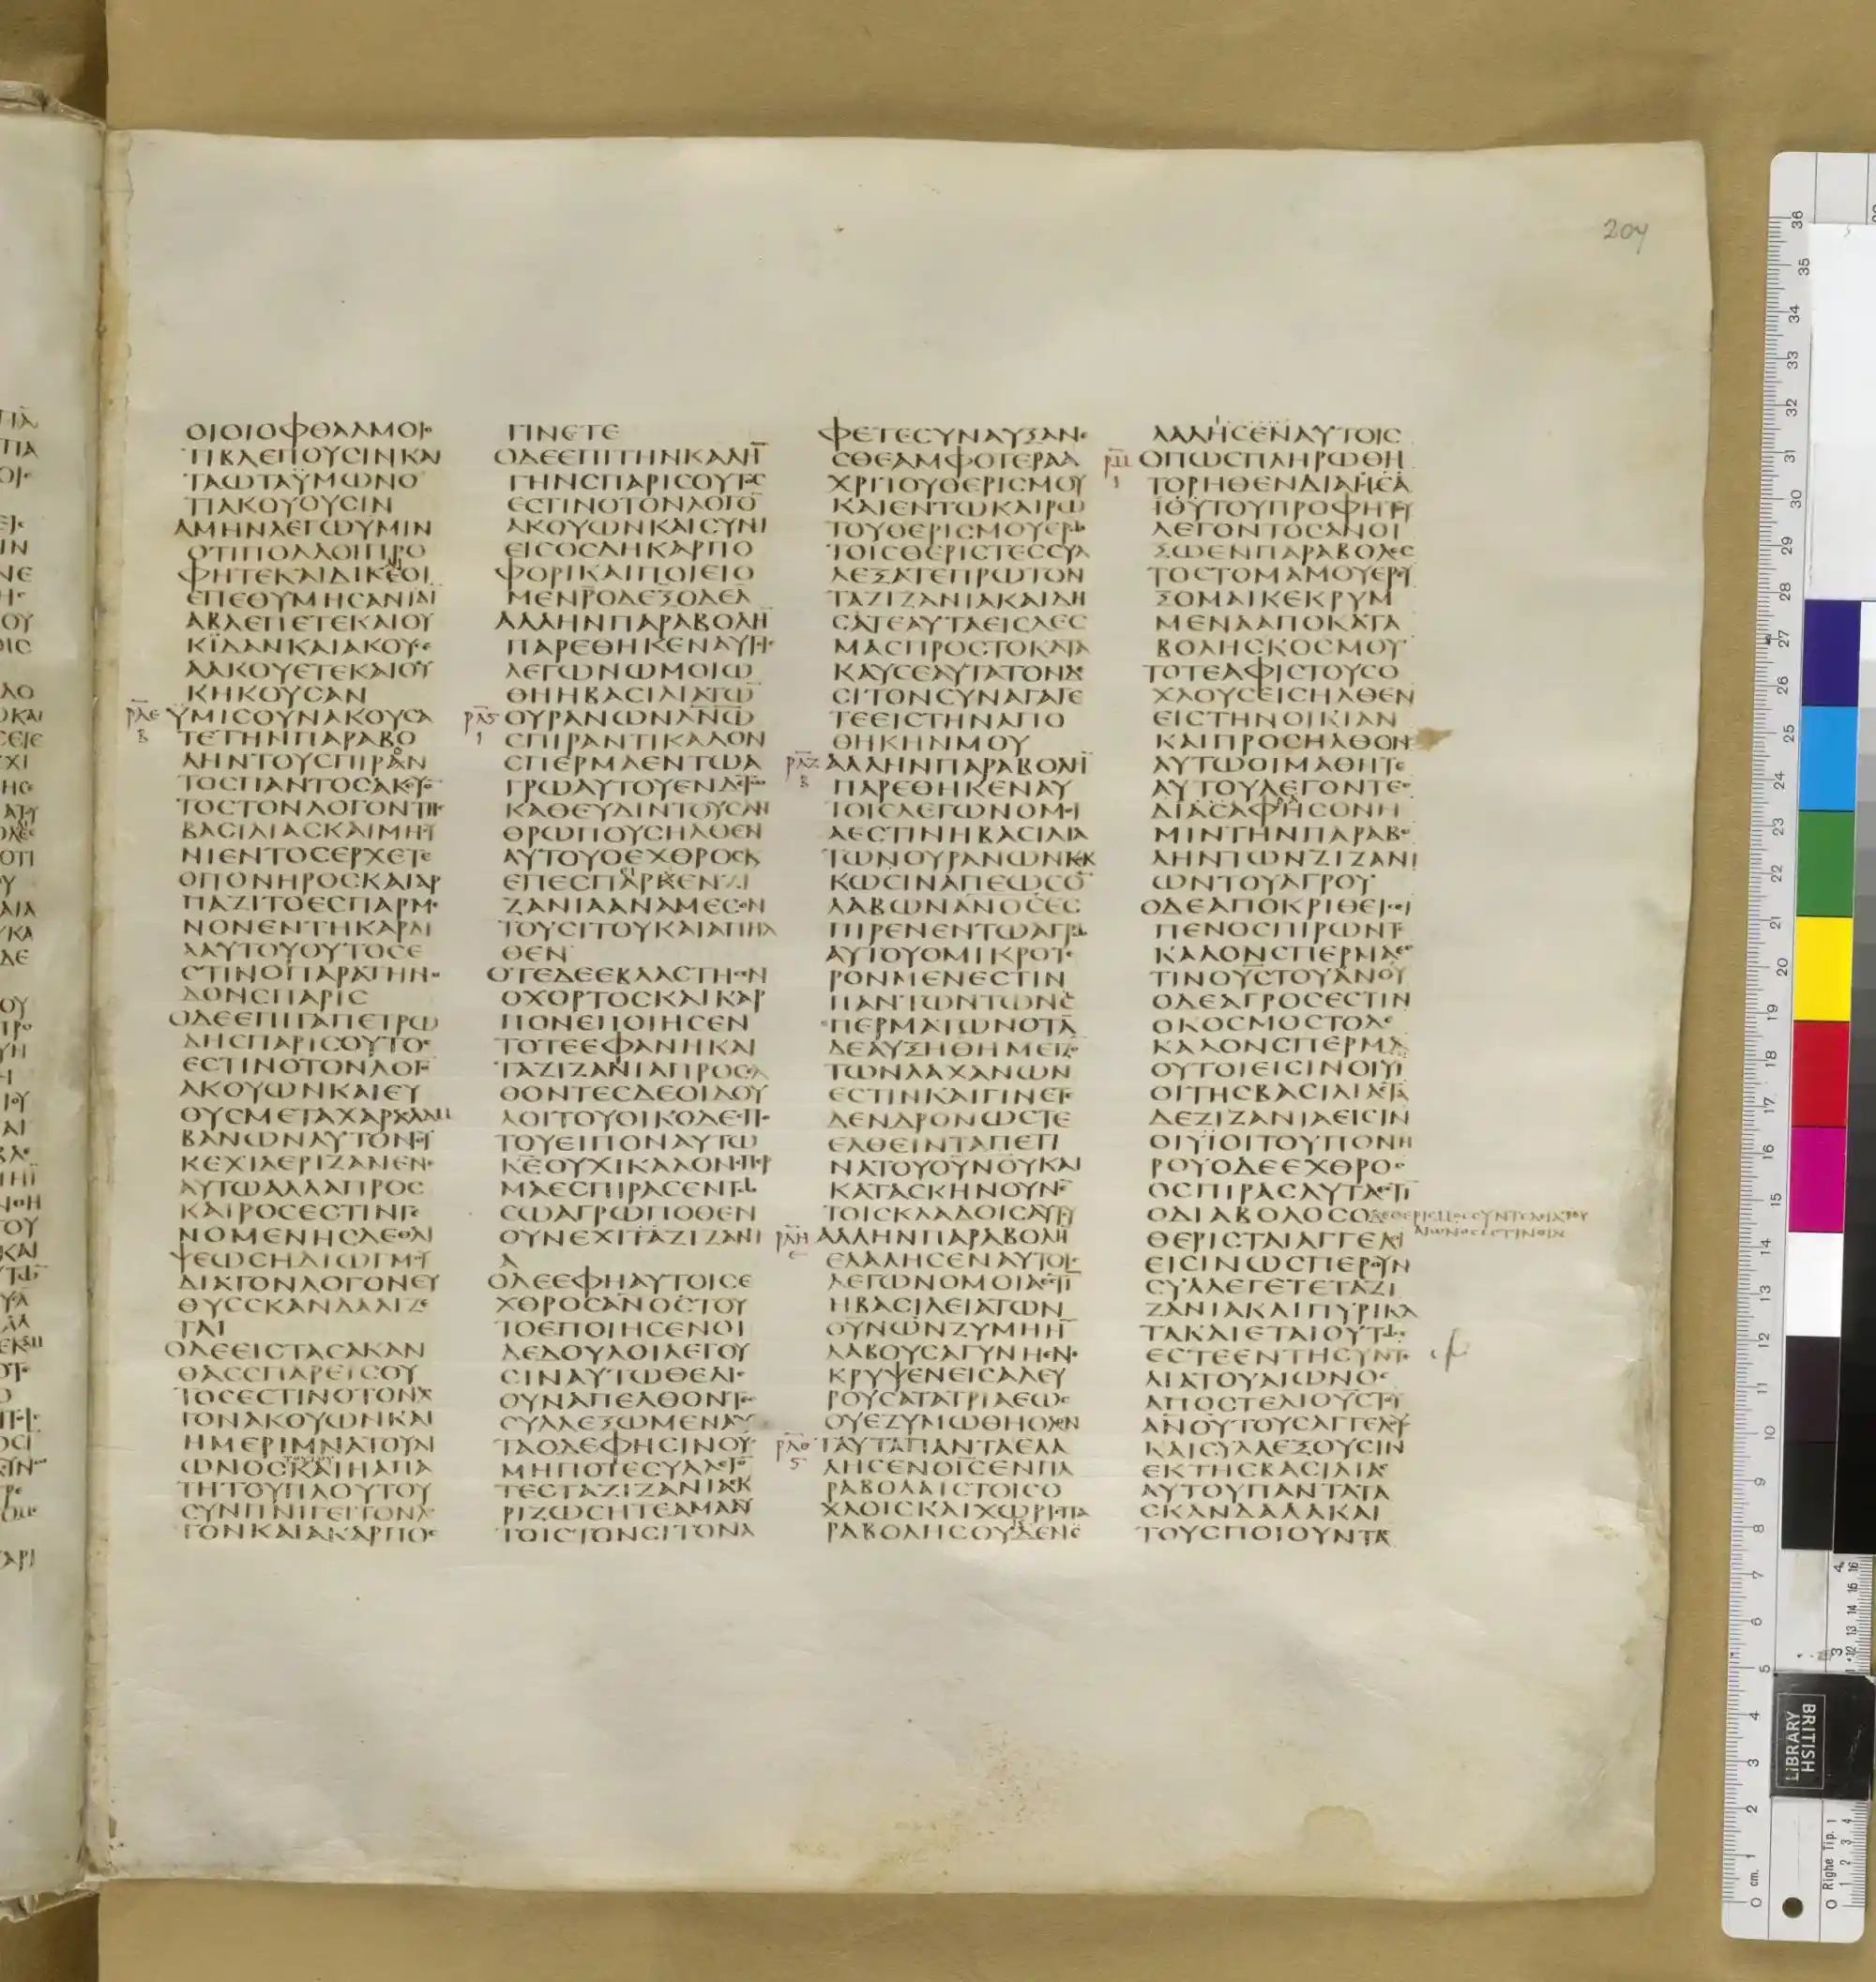 204
ΟΙΟΙΟΦΘΑΛΜΟΙ
ΤΙΒΛΕΠΟΥΣΙΝΚΑΙ
ΤΑΩΤΑΫΜΩΝΟ
ΤΙΑΚΟΥΟΥΣΙΝ
ΑΜΗΝΛΕΓΩΥΜΙΝ
ΟΤΙΠΟΛΛΟΙΠΡΟ
ΦΗΤΕΚΑΙΔΙΚΕΟΙ
ΕΠΕΘΥΜΗΣΑΝΙΔΙ
ΑΒΛΕΠΕΤΕΚΑΙΟΥ
ΚΪΔΑΝΚΑΙΑΚΟΥΣΕ
ΑΑΚΟΥΕΤΕΚΑΙΟΥ
ΚΗΚΟΥΣΑΝ
ΡΛΕ
Β
ΫΜΙΣΟΥΝΑΚΟΥΣΑ
ΤΕΤΗΝΠΑΡΑΒΟ
ΛΗΝΤΟΥΣΠΙΡΑΝ
ΤΟΣΠΑΝΤΟΣΑΚΟΥΟ
ΤΟΣΤΟΝΛΟΓΟΝΤΗΣ
ΒΑΣΙΛΙΑΣΚΑΙΜΗΣΥ
ΝΙΕΝΤΟΣΕΡΧΕΤΕ
ΟΠΟΝΗΡΟΣΚΑΙΑΡ
ΠΑΖΙΤΟΕΣΠΑΡΜΕ
ΝΟΝΕΝΤΗΚΑΡΔΙ
ΑΑΥΤΟΥΟΥΤΟΣΕ
ΣΤΙΝΟΠΑΡΑΤΗΝΟ
ΔΟΝΣΠΑΡΙΣ
ΟΔΕΕΠΙΤΑΠΕΤΡΩ
ΔΗΣΠΑΡΙΣΟΥΤΟΣ
ΕΣΤΙΝΟΤΟΝΛΟΓ
ΑΚΟΥΩΝΚΑΙΕΥ
ΟΥΣΜΕΤΑΧΑΡΑΣΛΑΜ
ΒΑΝΩΝΑΥΤΟΝΟΥ
ΚΕΧΙΔΕΡΙΖΑΝΕΝΕ
ΑΥΤΩΑΛΛΑΠΡΟΣ
ΚΑΙΡΟΣΕΣΤΙΝΓΕ
ΝΟΜΕΝΗΣΔΕΘΛΙ
ΨΕΩΣΗΔΙΩΓΜΟΥ
ΔΙΑΤΟΝΛΟΓΟΝΕΥ
ΘΥΣΣΚΑΝΔΑΛΙΖΕ
ΤΑΙ
ΟΔΕΕΙΣΤΑΣΑΚΑΝ
ΘΑΣΣΠΑΡΕΙΣΟΥ
ΤΟΣΕΣΤΙΝΟΤΟΝΛΟ
ΓΟΝΑΚΟΥΩΝΚΑΙ
ΗΜΕΡΙΜΝΑΤΟΥΑΙ
ΩΝΟΣΚΑΙΗΑΠΑ
ΤΗΤΟΥΠΛΟΥΤΟΥ
ΣΥΝΠΝΙΓΕΙΤΟΝΛΟ
ΓΟΝΚΑΙΑΚΑΡΠΟΣ
ΓΙΝΕΤΕ
ΟΔΕΕΠΙΤΗΝΚΑΛΗ
ΓΗΝΣΠΑΡΙΣΟΥΤΟΣ
ΕΣΤΙΝΟΤΟΝΛΟΓΟ
ΑΚΟΥΩΝΚΑΙΣΥΝΙ
ΕΙΣΟΣΔΗΚΑΡΠΟ
ΦΟΡΙΚΑΙΠΟΙΕΙΟ
ΜΕΝΡΟΔΕΞΟΔΕΛ
ΑΛΛΗΝΠΑΡΑΒΟΛΗ
ΠΑΡΕΘΗΚΕΝΑΥΤΟΙΣ
ΛΕΓΩΝΩΜΟΙΩ
ΘΗΗΒΑΣΙΛΙΑΤΩ
ΡΛϚ
Ι
ΟΥΡΑΝΩΝΑΝΩ
ΣΠΙΡΑΝΤΙΚΑΛΟΝ
ΣΠΕΡΜΑΕΝΤΩΑ
ΓΡΩΑΥΤΟΥΕΝΔΕΤΩ
ΚΑΘΕΥΔΙΝΤΟΥΣΑΝ
ΘΡΩΠΟΥΣΗΛΘΕΝ
ΑΥΤΟΥΟΕΧΘΡΟΣΚ
ΕΠΕΣΠΑΡΚΕΝΖΙ
ΖΑΝΙΑΑΝΑΜΕΣΟΝ
ΤΟΥΣΙΤΟΥΚΑΙΑΠΗΛ
ΘΕΝ
ΟΤΕΔΕΕΒΛΑΣΤΗΣΕΝ
ΟΧΟΡΤΟΣΚΑΙΚΑΡ
ΠΟΝΕΠΟΙΗΣΕΝ
ΤΟΤΕΕΦΑΝΗΚΑΙ
ΤΑΖΙΖΑΝΙΑΠΡΟΣΕΛ
ΘΟΝΤΕΣΔΕΟΙΔΟΥ
ΛΟΙΤΟΥΟΙΚΟΔΕΣΠΟ
ΤΟΥΕΙΠΟΝΑΥΤΩ
ΚΕΟΥΧΙΚΑΛΟΝΣΠΕΡ
ΜΑΕΣΠΙΡΑΣΕΝΤΩ
ΣΩΑΓΡΩΠΟΘΕΝ
ΟΥΝΕΧΙΤΑΖΙΖΑΝΙ
Α
ΟΔΕΕΦΗΑΥΤΟΙΣΕ
ΧΘΡΟΣΑΝΟΣΤΟΥ
ΤΟΕΠΟΙΗΣΕΝΟΙ
ΔΕΔΟΥΛΟΙΛΕΓΟΥ
ΣΙΝΑΥΤΩΘΕΛΙΣ
ΟΥΝΑΠΕΛΘΟΝΤΕΣ
ΣΥΛΛΕΞΩΜΕΝΑΥ
ΤΑΟΔΕΦΗΣΙΝΟΥ
ΜΗΠΟΤΕΣΥΛΛΕΓΟ
ΤΕΣΤΑΖΙΖΑΝΙΑΕΚ
ΡΙΖΩΣΗΤΕΑΜΑΑΥ
ΤΟΙΣΤΟΝΣΙΤΟΝΑ
ΦΕΤΕΣΥΝΑΥΞΑΝΕ
ΣΘΕΑΜΦΟΤΕΡΑΑ
ΧΡΙΤΟΥΘΕΡΙΣΜΟΥ
ΚΑΙΕΝΤΩΚΑΙΡΩ
ΤΟΥΘΕΡΙΣΜΟΥΕΡΩ
ΤΟΙΣΘΕΡΙΣΤΕΣΣΥΛ
ΛΕΞΑΤΕΠΡΩΤΟΝ
ΤΑΖΙΖΑΝΙΑΚΑΙΔΗ
ΣΑΤΕΑΥΤΑΕΙΣΔΕΣ
ΜΑΣΠΡΟΣΤΟΚΑΤΑ
ΚΑΥΣΕΑΥΤΑΤΟΝΔΕ
ΣΙΤΟΝΣΥΝΑΓΑΓΕ
ΤΕΕΙΣΤΗΝΑΠΟ
ΘΗΚΗΝΜΟΥ
ΡΛΖ
Β
ΑΛΛΗΝΠΑΡΑΒΟΛΗ
ΠΑΡΕΘΗΚΕΝΑΥ
ΤΟΙΣΛΕΓΩΝΟΜΟΙ
ΑΕΣΤΙΝΗΒΑΣΙΛΙΑ
ΤΩΝΟΥΡΑΝΩΝΚΟΚ
ΚΩΣΙΝΑΠΕΩΣΟ
ΛΑΒΩΝΑΝΟΣΕΣ
ΠΙΡΕΝΕΝΤΩΑΓΡΩ
ΑΥΤΟΥΟΜΙΚΡΟΤΕ
ΡΟΝΜΕΝΕΣΤΙΝ
ΠΑΝΤΩΝΤΩΝΣ
ΠΕΡΜΑΤΩΝΟΤΑ
ΔΕΑΥΞΗΘΗΜΕΙΖΟ
ΤΩΝΛΑΧΑΝΩΝ
ΕΣΤΙΝΚΑΙΓΙΝΕΤ
ΔΕΝΔΡΟΝΩΣΤΕ
ΕΛΘΕΙΝΤΑΠΕΤΙ
ΝΑΤΟΥΟΥΝΟΥΚΑΙ
ΚΑΤΑΣΚΗΝΟΥΝΕ
ΤΟΙΣΚΛΑΔΟΙΣΑΥΤΟΥ
ΡΛΗ
Ε
ΑΛΛΗΝΠΑΡΑΒΟΛΗ
ΕΛΑΛΗΣΕΝΑΥΤΟΙΣ
ΛΕΓΩΝΟΜΟΙΑΕΣΤΙ
ΗΒΑΣΙΛΕΙΑΤΩΝ
ΟΥΝΩΝΖΥΜΗΗ
ΛΑΒΟΥΣΑΓΥΝΗΕΝΕ
ΚΡΥΨΕΝΕΙΣΑΛΕΥ
ΡΟΥΣΑΤΑΤΡΙΑΕΩΣ
ΟΥΕΖΥΜΩΘΗΟΛΟΝ
ΡΛΘ
Ϛ
ΤΑΥΤΑΠΑΝΤΑΕΛΑ
ΛΗΣΕΝΟΙΣΕΝΠΑ
ΡΑΒΟΛΑΙΣΤΟΙΣΟ
ΧΛΟΙΣΚΑΙΧΩΡΙΣΠΑ
ΡΑΒΟΛΗΣΟΥΔΕΝΕ
ΛΑΛΗΣΕΝΑΥΤΟΙΣ
ΡΜ
Ι
ΟΠΩΣΠΛΗΡΩΘΗ
ΤΟΡΗΘΕΝΔΙΑΗΣΑ
ΙΟΥΤΟΥΠΡΟΦΗΤΟΥ
ΛΕΓΟΝΤΟΣΑΝΟΙ
ΞΩΕΝΠΑΡΑΒΟΛΕΣ
ΤΟΣΤΟΜΑΜΟΥΕΡΕΥ
ΞΟΜΑΙΚΕΚΡΥΜ
ΜΕΝΑΑΠΟΚΑΤΑ
ΒΟΛΗΣΚΟΣΜΟΥ
ΤΟΤΕΑΦΙΣΤΟΥΣΟ
ΧΛΟΥΣΕΙΣΗΛΘΕΝ
ΕΙΣΤΗΝΟΙΚΙΑΝ
ΚΑΙΠΡΟΣΗΛΘΟΝ
ΑΥΤΩΟΙΜΑΘΗΤΕ
ΑΥΤΟΥΛΕΓΟΝΤΕΣ
ΔΙΑΣΑΦΗΣΟΝΗ
ΜΙΝΤΗΝΠΑΡΑΒΟ
ΛΗΝΤΩΝΖΙΖΑΝΙ
ΩΝΤΟΥΑΓΡΟΥ
ΟΔΕΑΠΟΚΡΙΘΕΙΣΕΙ
ΠΕΝΟΣΠΙΡΩΝΤΟ
ΚΑΛΟΝΣΠΕΡΜΑΕΣ
ΤΙΝΟΥΣΤΟΥΑΝΟΥ
ΟΔΕΑΓΡΟΣΕΣΤΙΝ
ΟΚΟΣΜΟΣΤΟΔΕ
ΚΑΛΟΝΣΠΕΡΜΑ
ΟΥΤΟΙΕΙΣΙΝΟΙΥΙ
ΟΙΤΗΣΒΑΣΙΛΙΑΣΤΑ
ΔΕΖΙΖΑΝΙΑΕΙΣΙΝ
ΟΙΫΙΟΙΤΟΥΠΟΝΗ
ΡΟΥΟΔΕΕΧΘΡΟΣ
ΟΣΠΙΡΑΣΑΥΤΑΕΣΤΙ
ΟΔΙΑΒΟΛΟΣΟ
ΔΕΘΕΡΙΣΜΟΣΣΥΝΤΕΛΙΑΤΟΥ
ΑΙΩΝΟΣΕΣΤΙΝΟΙΔΕ
ΘΕΡΙΣΤΑΙΑΓΓΕΛΟΙ
ΕΙΣΙΝΩΣΠΕΡΟΥΝ
ΣΥΛΛΕΓΕΤΕΤΑΖΙ
ΖΑΝΙΑΚΑΙΠΥΡΙΚΑ
ΤΑΚΑΙΕΤΑΙΟΥΤΩΣ
ΕΣΤΕΕΝΤΗΣΥΝΤΕ
ΛΙΑΤΟΥΑΙΩΝΟΣ
ΑΠΟΣΤΕΛΙΟΥΣΤΟΥ
ΑΝΟΥΤΟΥΣΑΓΓΕΛΟΥΣ
ΚΑΙΣΥΛΛΕΞΟΥΣΙΝ
ΕΚΤΗΣΒΑΣΙΛΙΑΣ
ΑΥΤΟΥΠΑΝΤΑΤΑ
ΣΚΑΝΔΑΛΑΚΑΙ
ΤΟΥΣΠΟΙΟΥΝΤΑΣ
BRITISH
LIBRARY
0 cm. 1 2 3 4 5 6 7 8 9 10 11 12 13 14 15 16 17 18 19 20 21 22 23 24 25 26 27 28 29 30 31 32 33 34 35 36
0 Righe Tip. 1